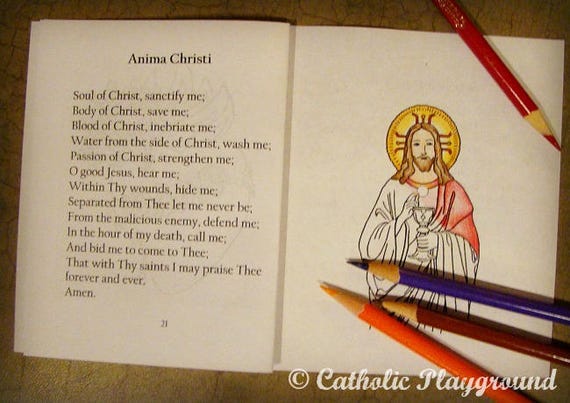 Anima Christi
Soul of Christ, sanctify me;
Body of Christ, save me;
Blood of Christ, inebriate me;
Water from the side of Christ, wash me;
Passion of Christ, strengthen me;
O good Jesus, hear me;
Within Thy wounds, hide me;
Separated from Thee let me never be;
From the malicious enemy, defend me;
In the hour of my death, call me;
And bid me to come to Thee;
That with Thy saints I may praise Thee
forever and ever.
Amen.
21
© Catholic Playground